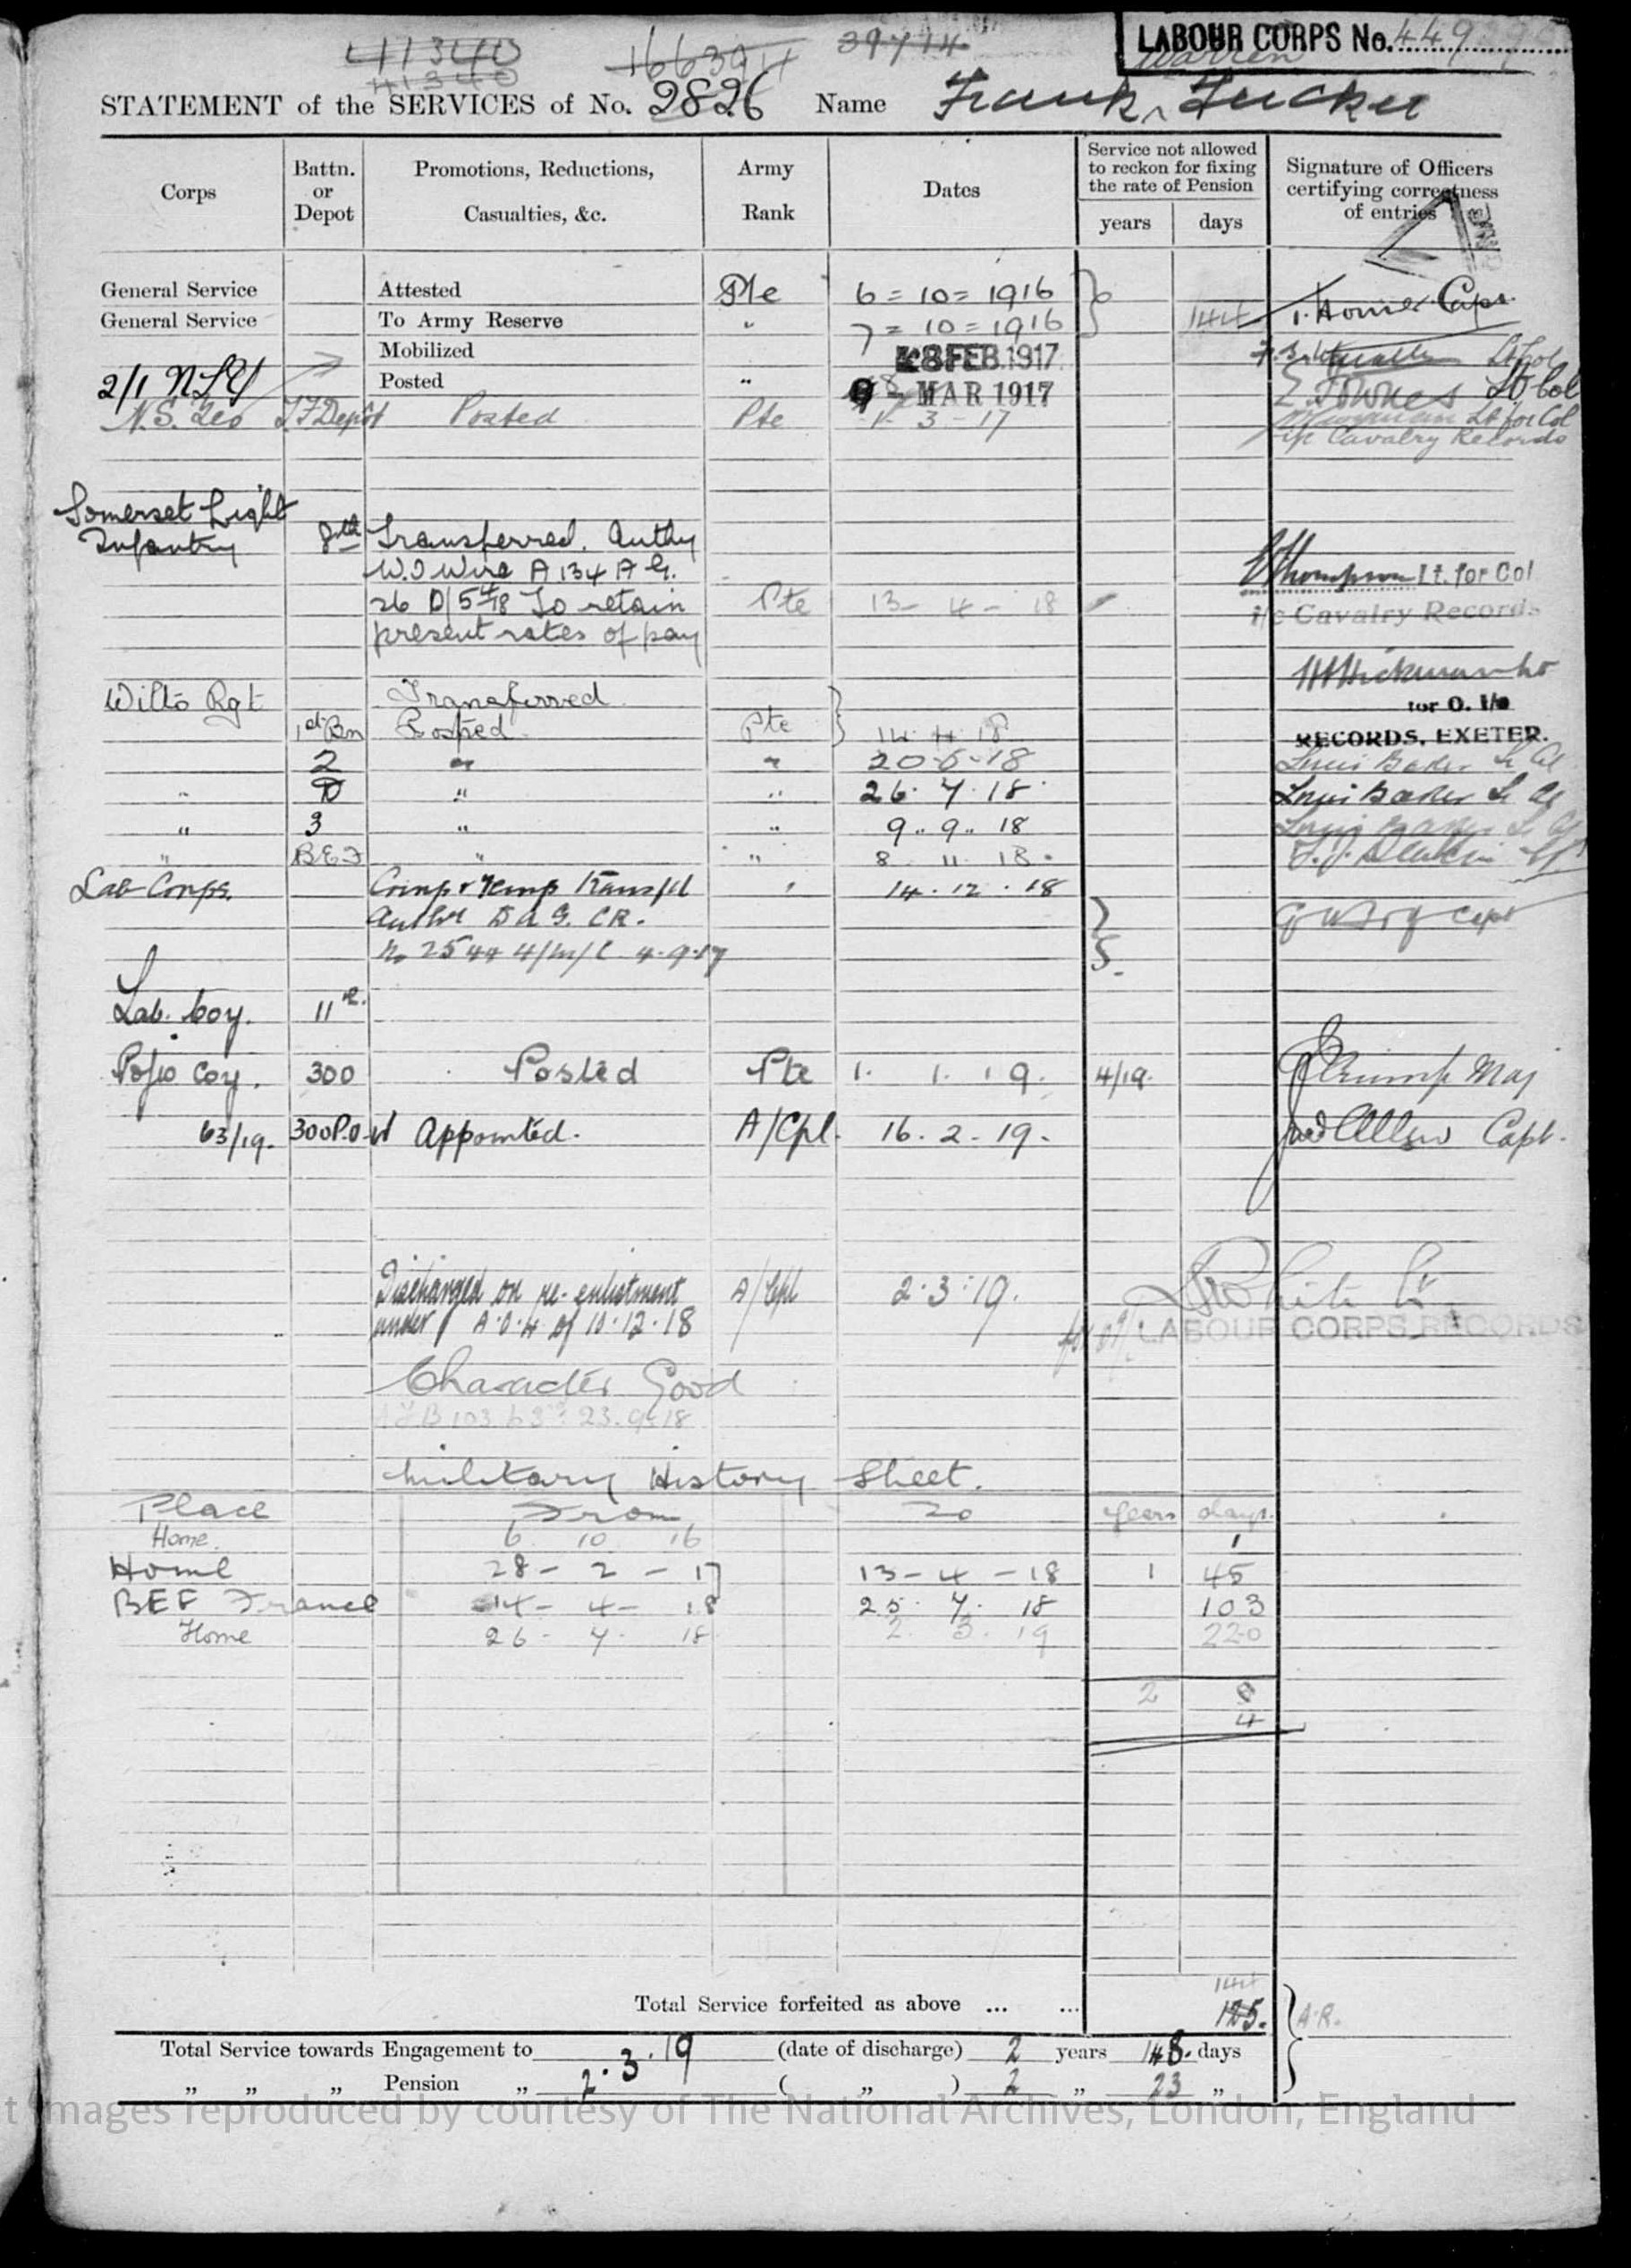 41340 166394 39714 LABOUR CORPS No. 449
41340 Warren
STATEMENT of the SERVICES of No. 2826 Name Frank Tucker
Corps
Battn. or Depot
Promotions, Reductions, Casualties, &c.
Army Rank
Dates
Service not allowed to reckon for fixing the rate of Pension
years days
Signature of Officers certifying correctness of entries
General Service Attested Pte 6 = 10 = 1916 Capt
General Service To Army Reserve " 7 = 10 = 1916 144
Mobilized 28 FEB 1917 Lt Col
2/1 N.S.Y Posted " MAR 1917 Lt Col
N.S. Yeo T.F. Depot Posted Pte 1 - 3 - 17 Lt for Col
i/c Cavalry Records
Somerset Light
Infantry 8th Transferred. Authy
W.O Wire A 134 A G. Thompson Lt. for Col
26 D/5/4/18 To retain Pte 13 - 4 - 18 i/c Cavalry Records
present rates of pay
Wilts Rgt Transferred Hickman Lt
for O. i/c
1st Bn Posted Pte 14 4 18 RECORDS, EXETER.
2 " " 20 - 6 - 18 Louis Baker Lt Col
" D " " 26. 7. 18 Louis Baker Lt Col
" 3 " " 9 .. 9 .. 18 Louis Baker Lt Col
" BEF " " 8 11 18.
Lab Corps. Comp & Temp Transfd " 14. 12. 18
Author D A G. CR. Capt
No 2544 4/M/C 4.9.17
Lab. Coy. 11
Coy. 300 Posted Pte 1. 1. 19. 4/19. Maj
63/19. 300 P.O.W Appointed. A/Cpl. 16. 2. 19. Capt.
Discharged on re-enlistment A/Cpl 2. 3. 19. White Lt
under A.O.4 of 10.12.18 LABOUR CORPS RECORDS
Character Good
23.9.18
Military History Sheet.
Place From To years days.
Home. 6 10 16 1
Home 28 - 2 - 17 13 - 4 - 18 1 45
BEF France 14 - 4 - 18 25. 7. 18 103
Home 26 - 7 - 18 2. 3. 19 220
2
4
144
Total Service forfeited as above ... ... 125. A.R.
Total Service towards Engagement to 2.3.19 (date of discharge) 2 years 148 days
" " " Pension " ( " ) 2 " 23 "
t images reproduced by courtesy of The National Archives, London, England